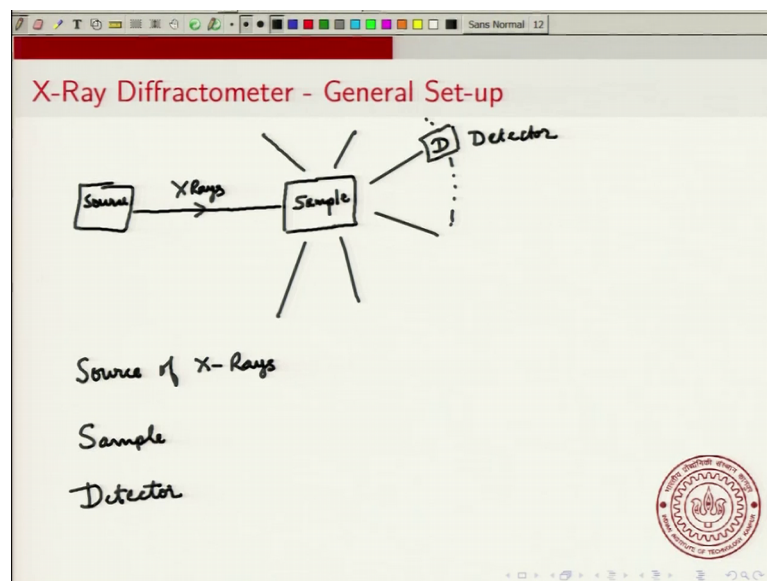 T
Sans Normal 12
X-Ray Diffractometer - General Set-up
D Detector
Source X Rays Sample
Source of X-Rays
Sample
Detector
INDIAN INSTITUTE OF TECHNOLOGY KANPUR